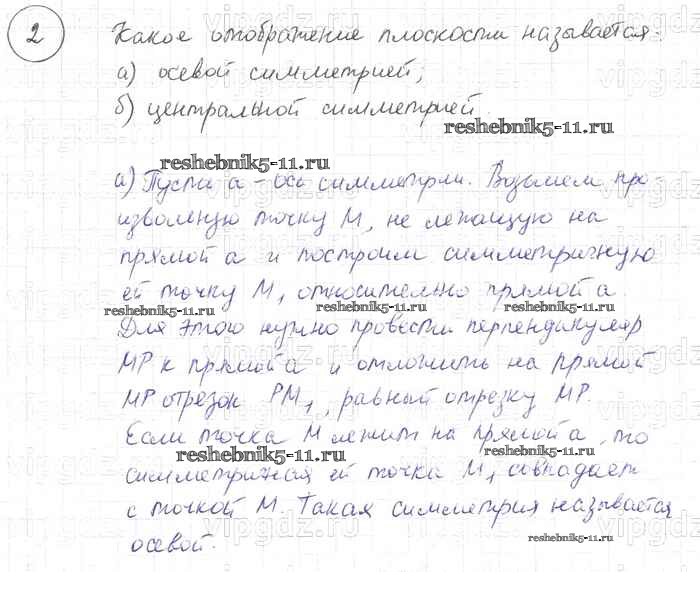 2 Какое отображение плоскости называется:
а) осевой симметрией;
б) центральной симметрией.
reshebnik5-11.ru
reshebnik5-11.ru
а) Пусть а - ось симметрии. Возьмем про
извольную точку М, не лежащую на
прямой а и построим симметричную
ей точку М₁ относительно прямой а.
reshebnik5-11.ru reshebnik5-11.ru reshebnik5-11.ru
Для этого нужно провести перпендикуляр
МР к прямой а и отложить на прямой
МР отрезок РМ₁, равный отрезку МР.
Если точка М лежит на прямой а, то
reshebnik5-11.ru reshebnik5-11.ru
симметричная ей точка М₁ совпадает
с точкой М. Такая симметрия называется
осевой.
reshebnik5-11.ru